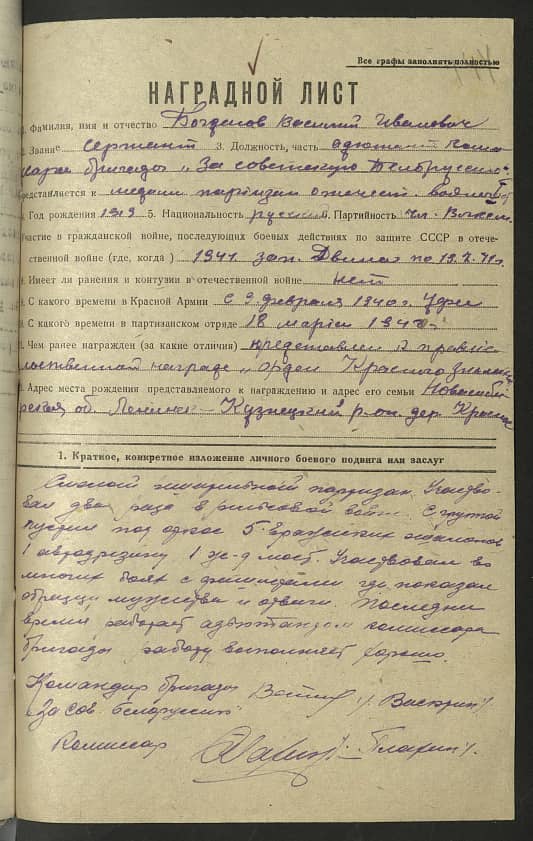 Все графы заполнять полностью
НАГРАДНОЙ ЛИСТ
1. Фамилия, имя и отчество Богданов Василий Иванович
2. Звание сержант 3. Должность, часть адютант коми-
сара бригады „За советскую Белоруссию"
Представляется к медали партизан отечест. войны
4. Год рождения 1919 5. Национальность русский 6. Партийность чл. Влксм
Участие в гражданской войне, последующих боевых действиях по защите СССР в отече-
ственной войне (где, когда) 1941 зап. Двина по 19.7.41г.
Имеет ли ранения и контузии в отечественной войне нет
С какого времени в Красной Армии с 9 февраля 1940г.
С какого времени в партизанском отряде 18 марта
Чем ранее награжден (за какие отличия) представлен к правит-
ельственной награде „орден Красного знамени
Адрес места рождения представляемого к награждению и адрес его семьи Новосиби-
рская об. Ленинск-Кузнецкий р-он дер.
1. Краткое, конкретное изложение личного боевого подвига или заслуг
Смелый партизан. Участво-
вал два раза в рельсовой войне. С группой
пустил под откос 5 вражеских эшалонов
1 автодрезину 1 ж-д мост. Участвовал во
многих боях с где показал
образцы мужества и отваги. Последни
время работает адъютантом комиссара
бригады работу выполняет хорошо.
Командир бригады
За сов. белоруссию
Комиссар